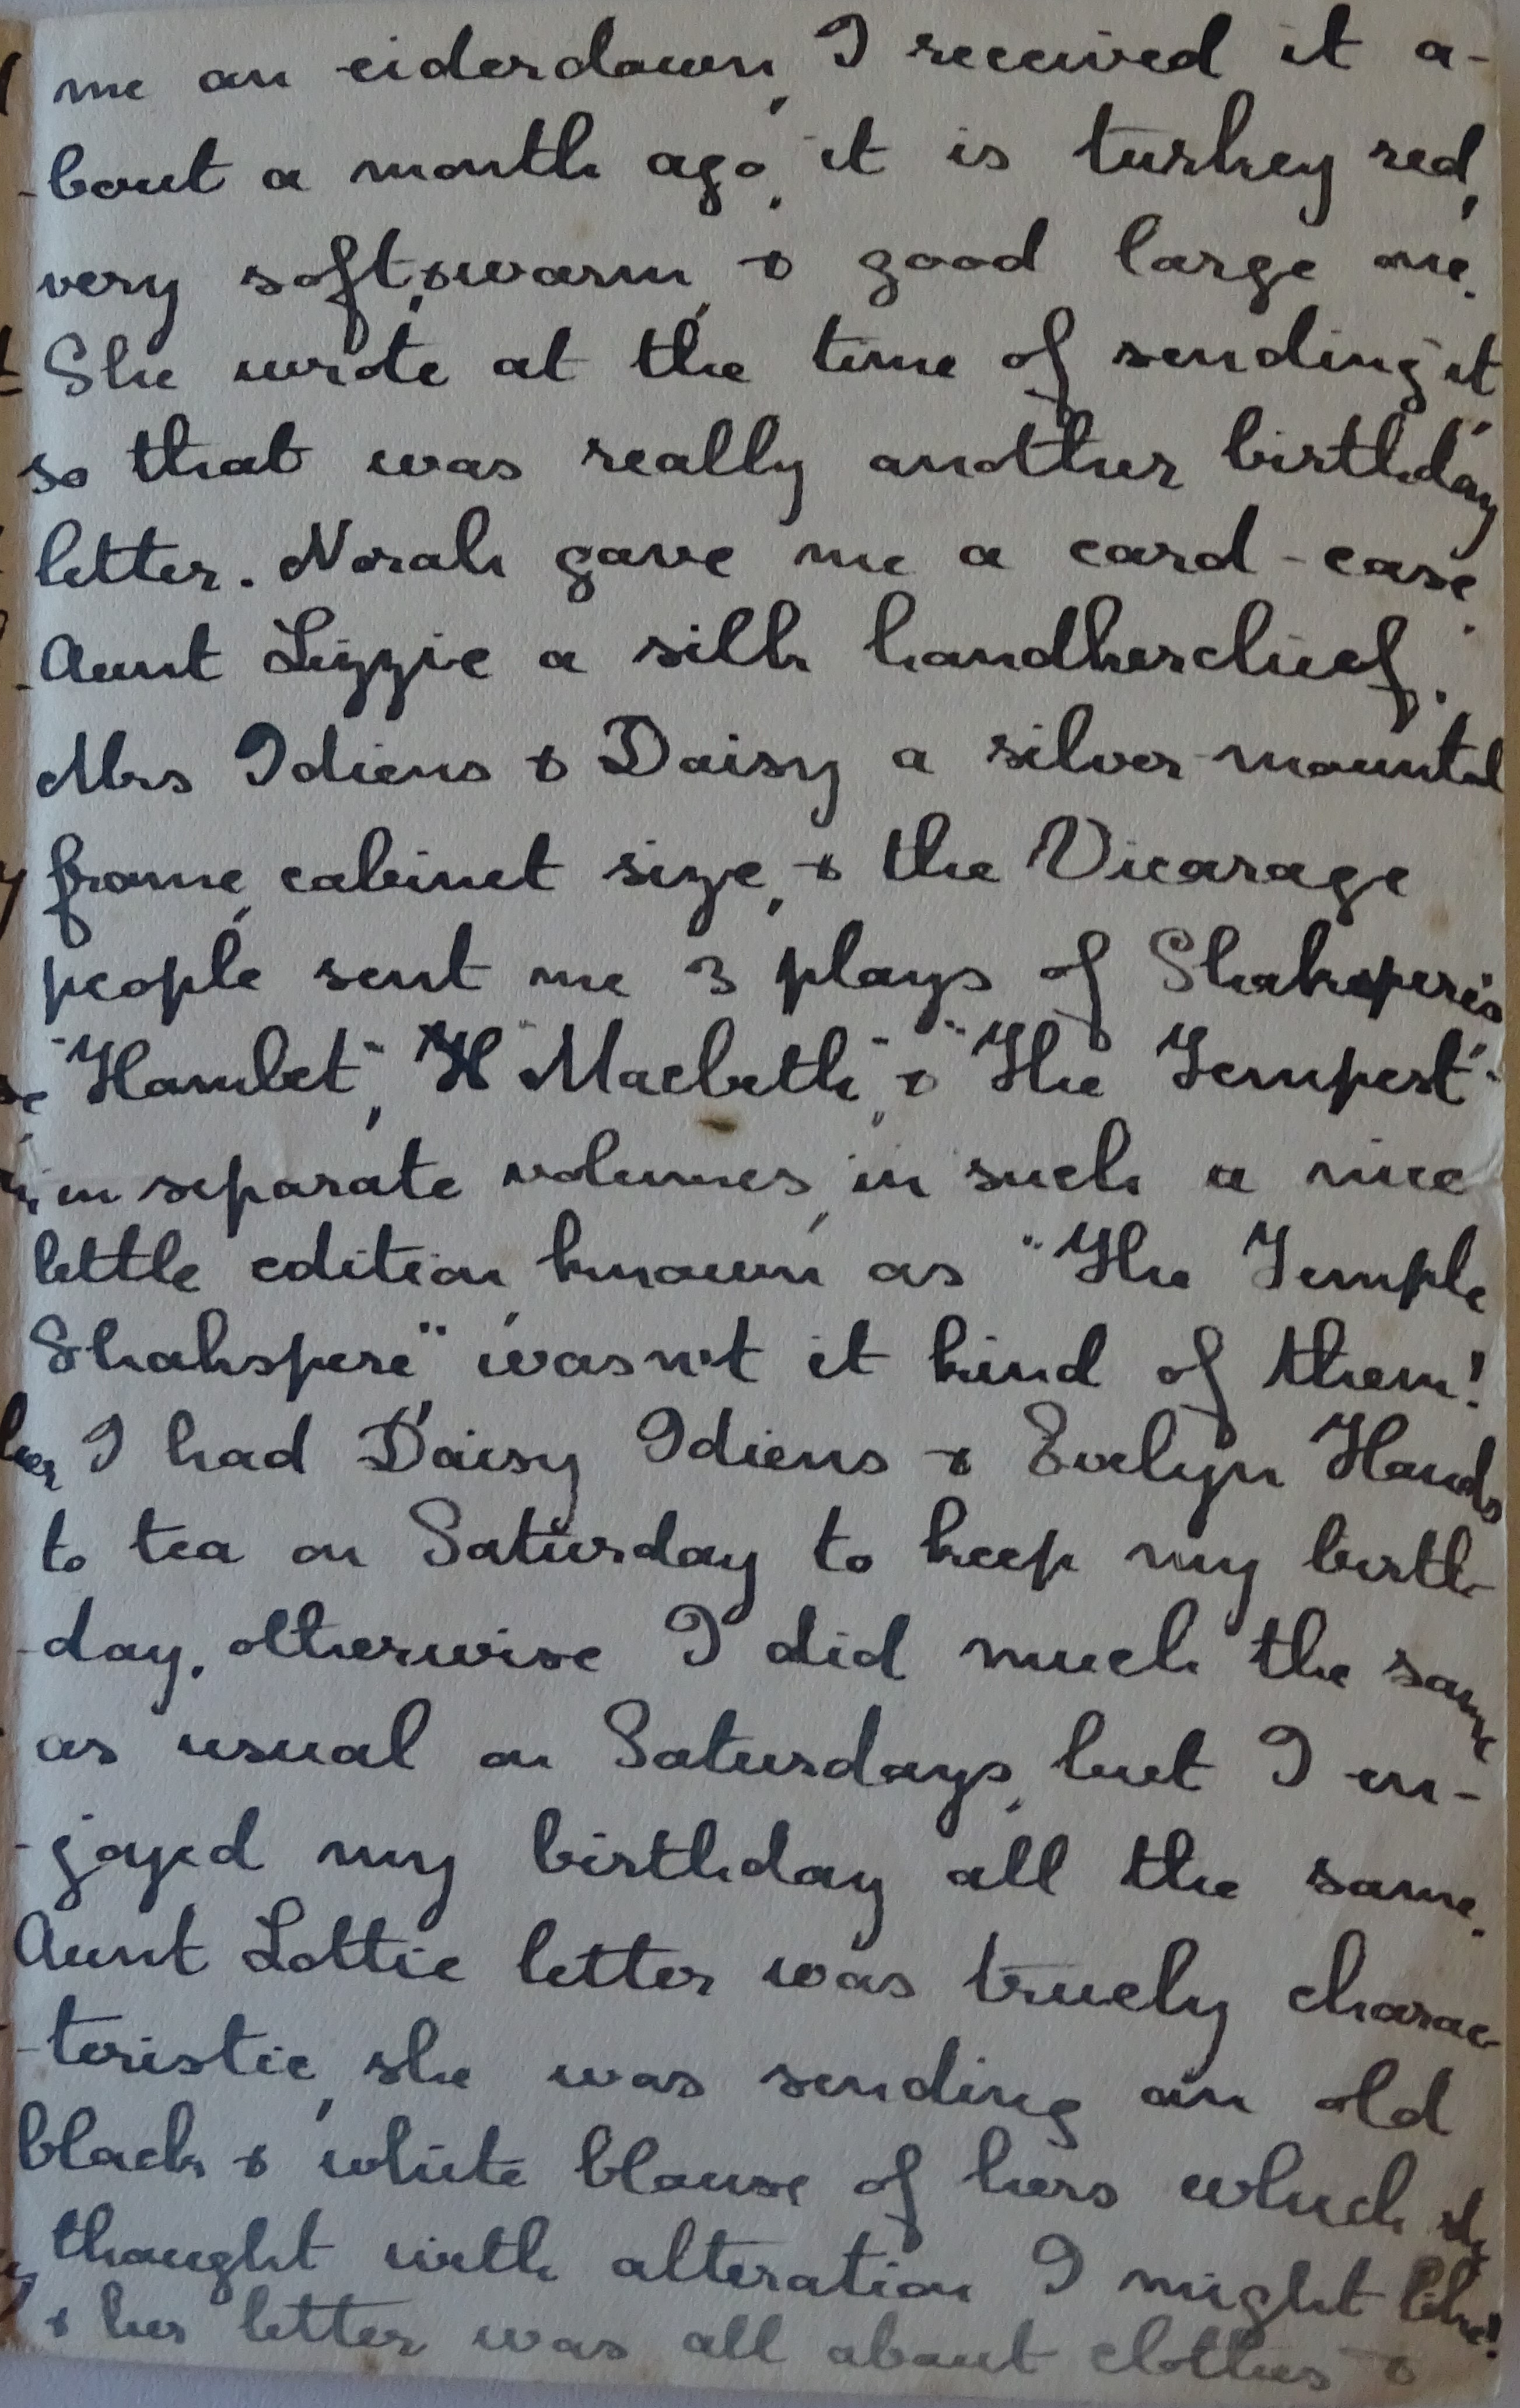 me an eiderdown, I received it a-
-bout a month ago, it is turkey red,
very soft, & warm, & good large one.
She wrote at the time of sending it,
so that was really another birthday
letter. Norah gave me a card-case.
Aunt Lizzie a silk handkerchief.
Mrs Idiens & Daisy a silver-mounted
frame, cabinet size, & the Vicarage
people sent me 3 plays of Shakspere's
"Hamlet", "Macbeth", & "The Tempest".
in separate volumes, in such a nice
little edition known as "The Temple
Shakspere", wasn't it kind of them!
I had Daisy Idiens & Evelyn Hands
to tea on Saturday to keep my birth-
-day, otherwise I did much the same
as usual on Saturdays, but I en-
-joyed my birthday all the same.
Aunt Lottie letter was truely charac-
-teristic, she was sending an old
black & white blouse of hers which she
thought with alteration I might like!
& her letter was all about clothes &